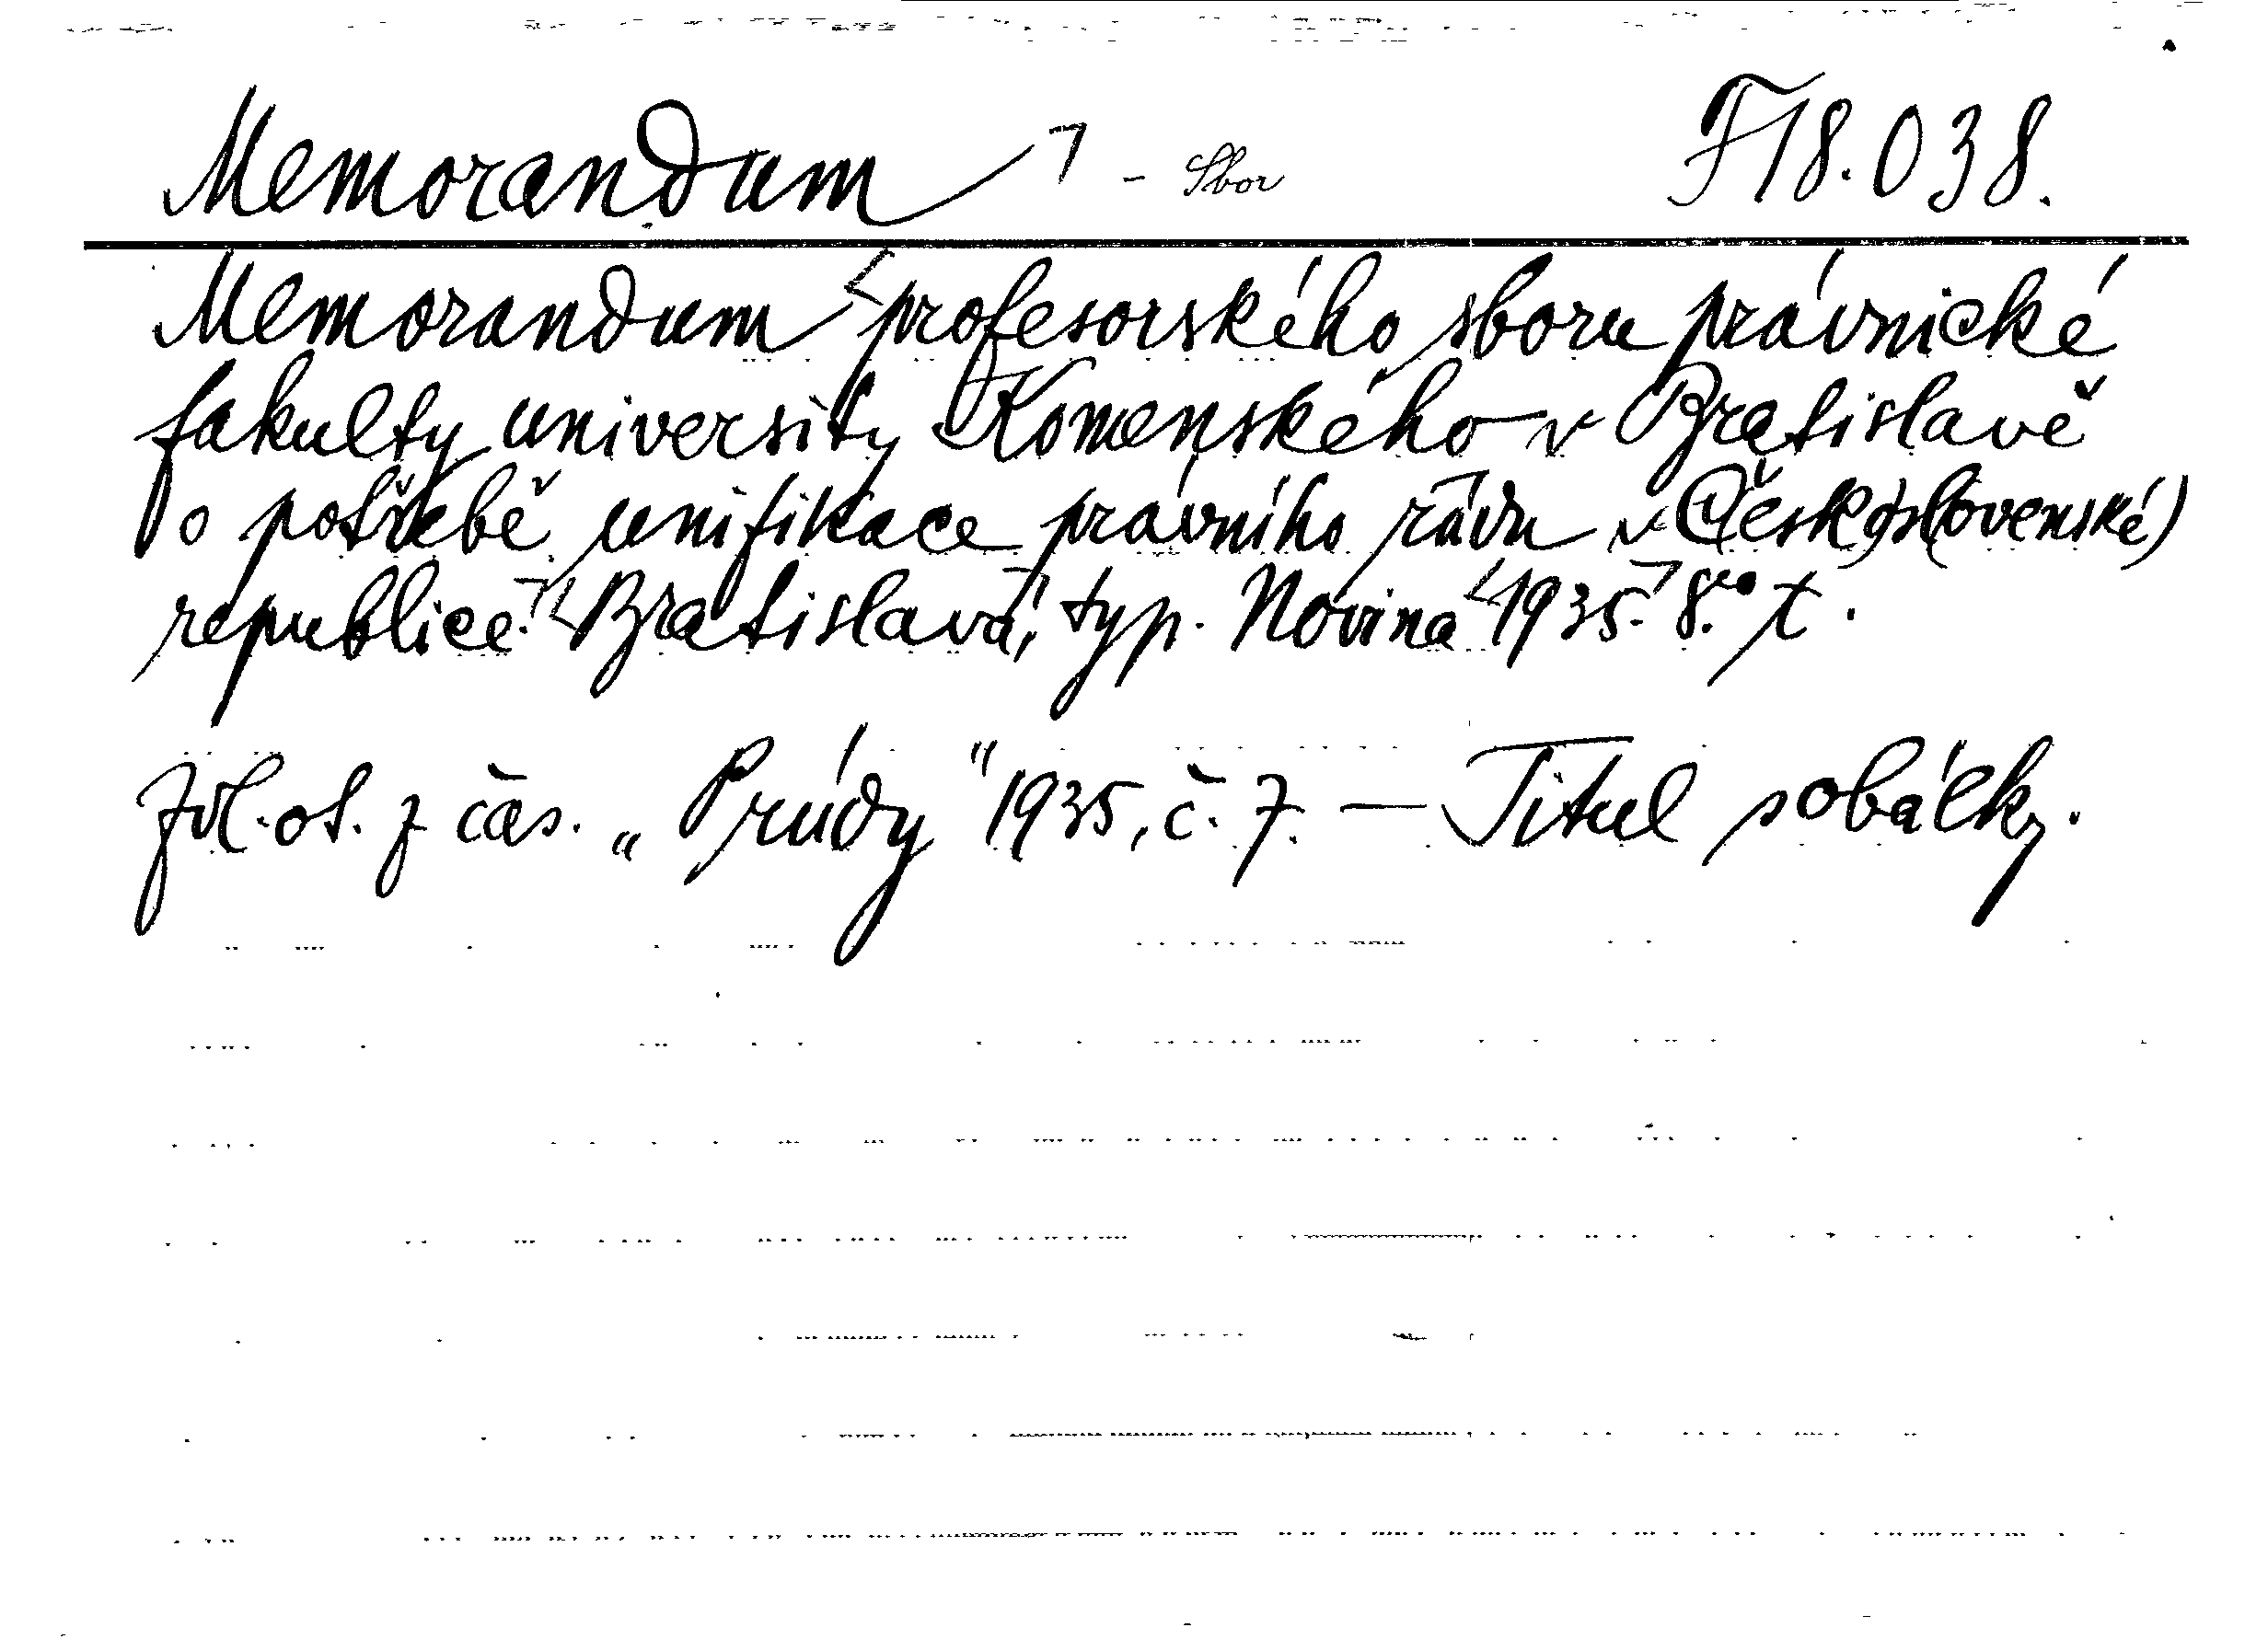 Memorandum - Sbor F 18.038.
Memorandum profesorského sboru právnické
fakulty university Komenského v Bratislavě
o potřebě unifikace právního řádu v Česk(o)slov(enské)
republice. Bratislava, typ. Novina 1935. 8.° t.
Zvl. ot. z čas. „Prúdy" 1935, č. 7. — Titul s obálky.